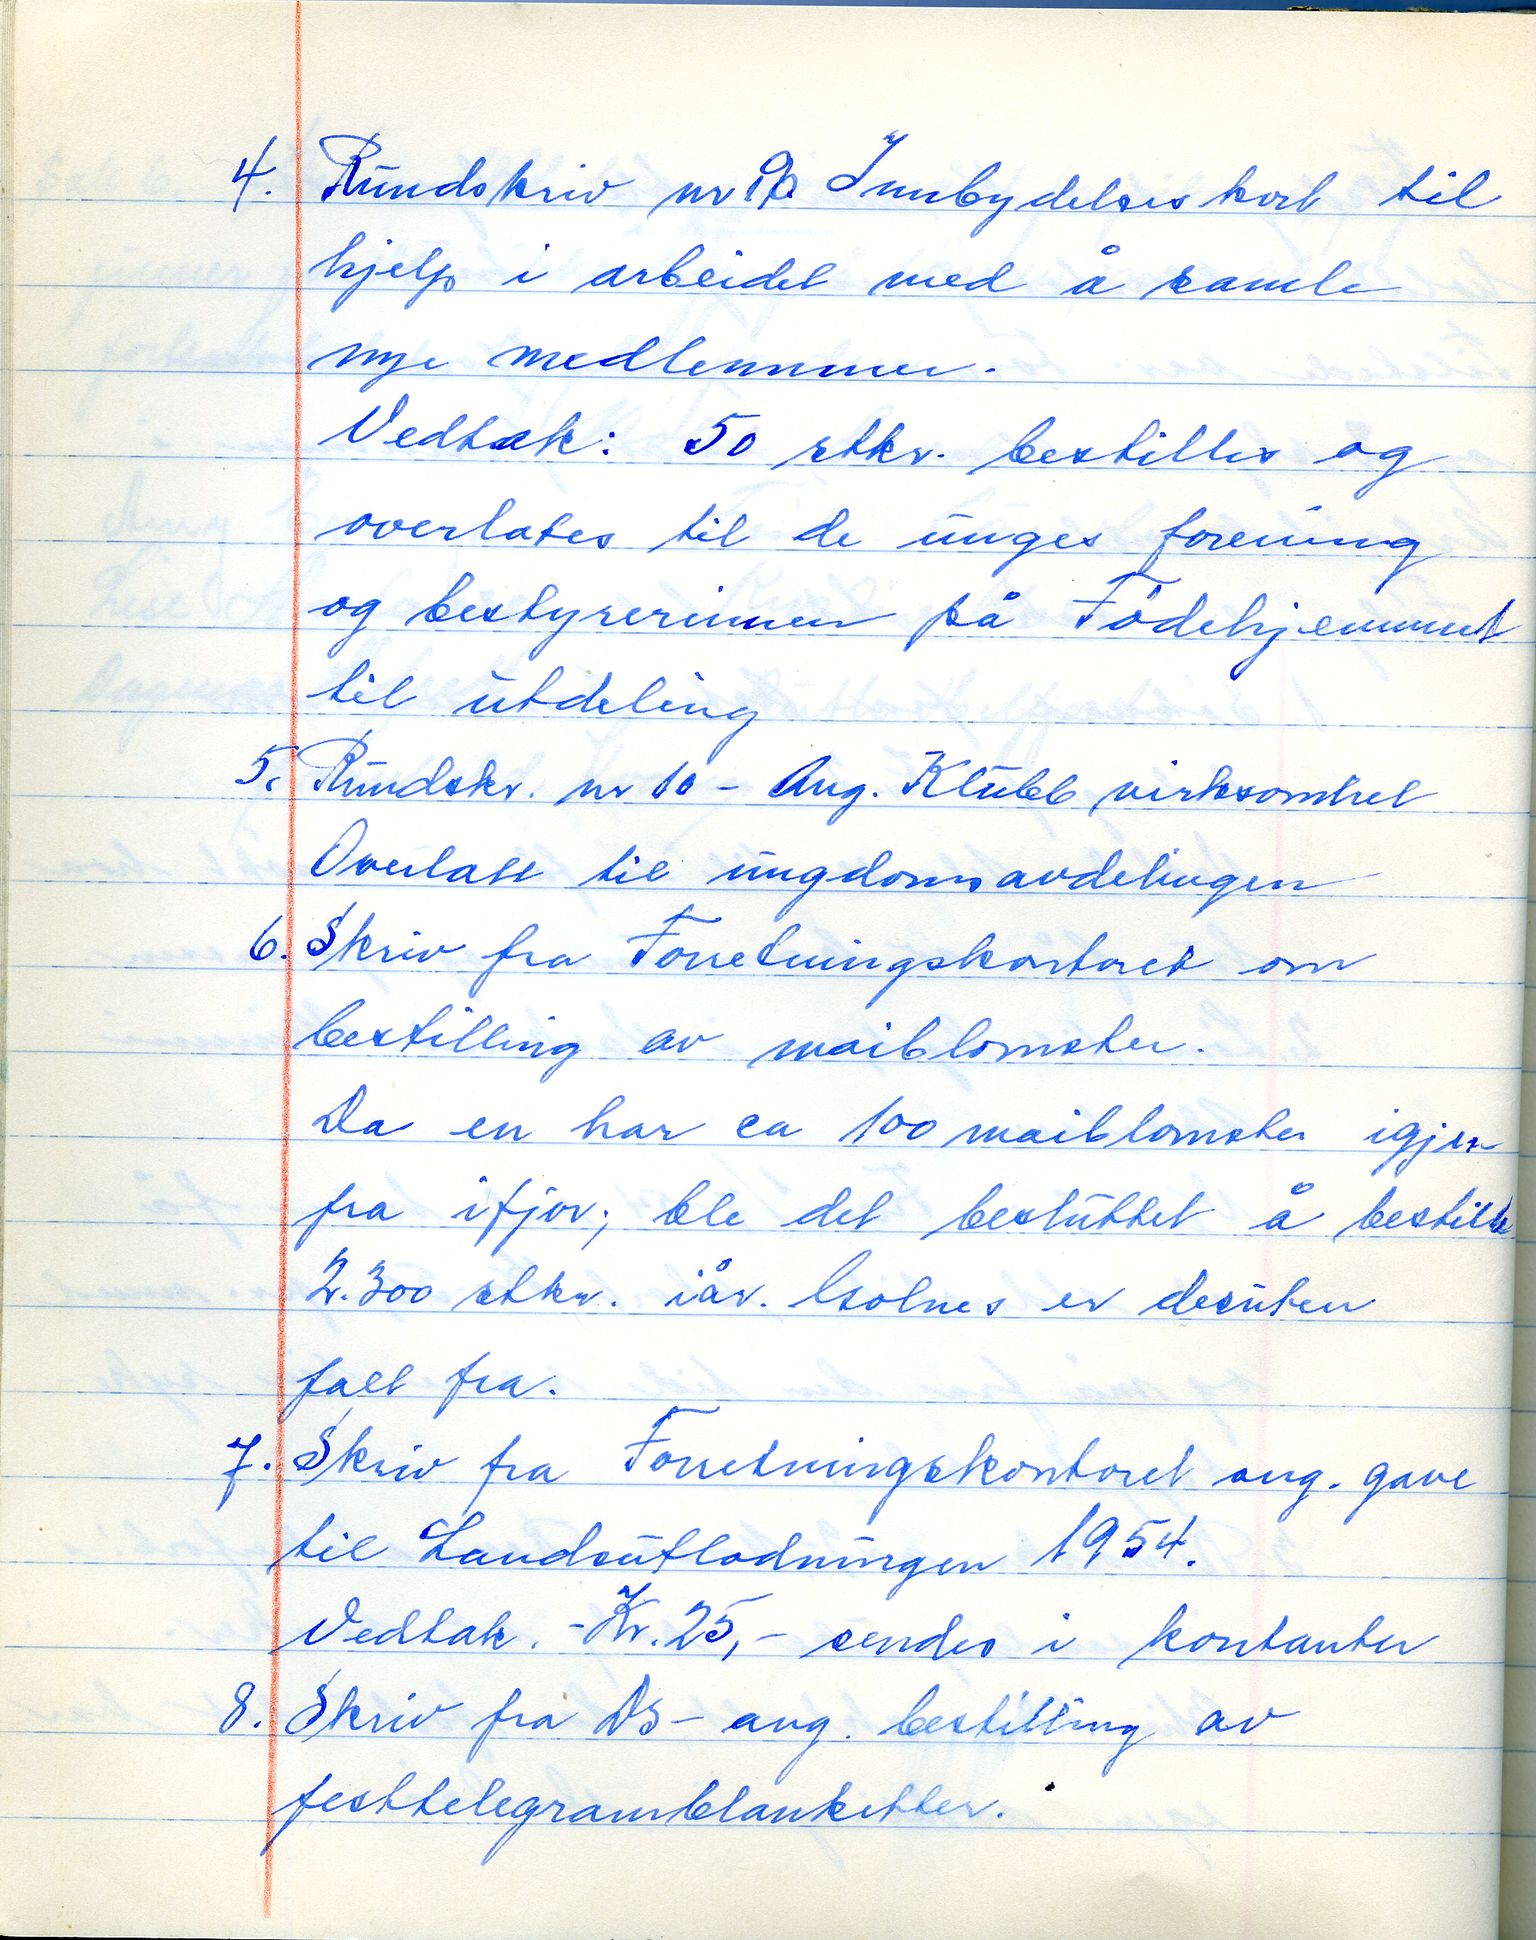 4. Rundskriv nr 9. Innbydelseskort til
hjelp i arbeidet med å samle
nye medlemmer.
Vedtak: 50 stkr. bestilles og
overlates til de unges forening
og bestyrerinnen på Fødehjemmet
til utdeling
5. Rundskr. nr 10 - Ang. Klubb virksomhet
Overlatt til ungdomsavdelingen
6. Skriv fra Forretningskontoret om
bestilling av maiblomster.
Da en har ca 100 maiblomster igjen
fra ifjor, ble det besluttet å bestille
2.300 stkr. iår. Isolnes er desuten
falt fra.
7. Skriv fra Forretningskontoret ang. gave
til Landsutlodningen 1954.
Vedtak. - Kr. 25,- sendes i kontanter
8. Skriv fra DS - ang. bestilling av
festtelegramblanketter.